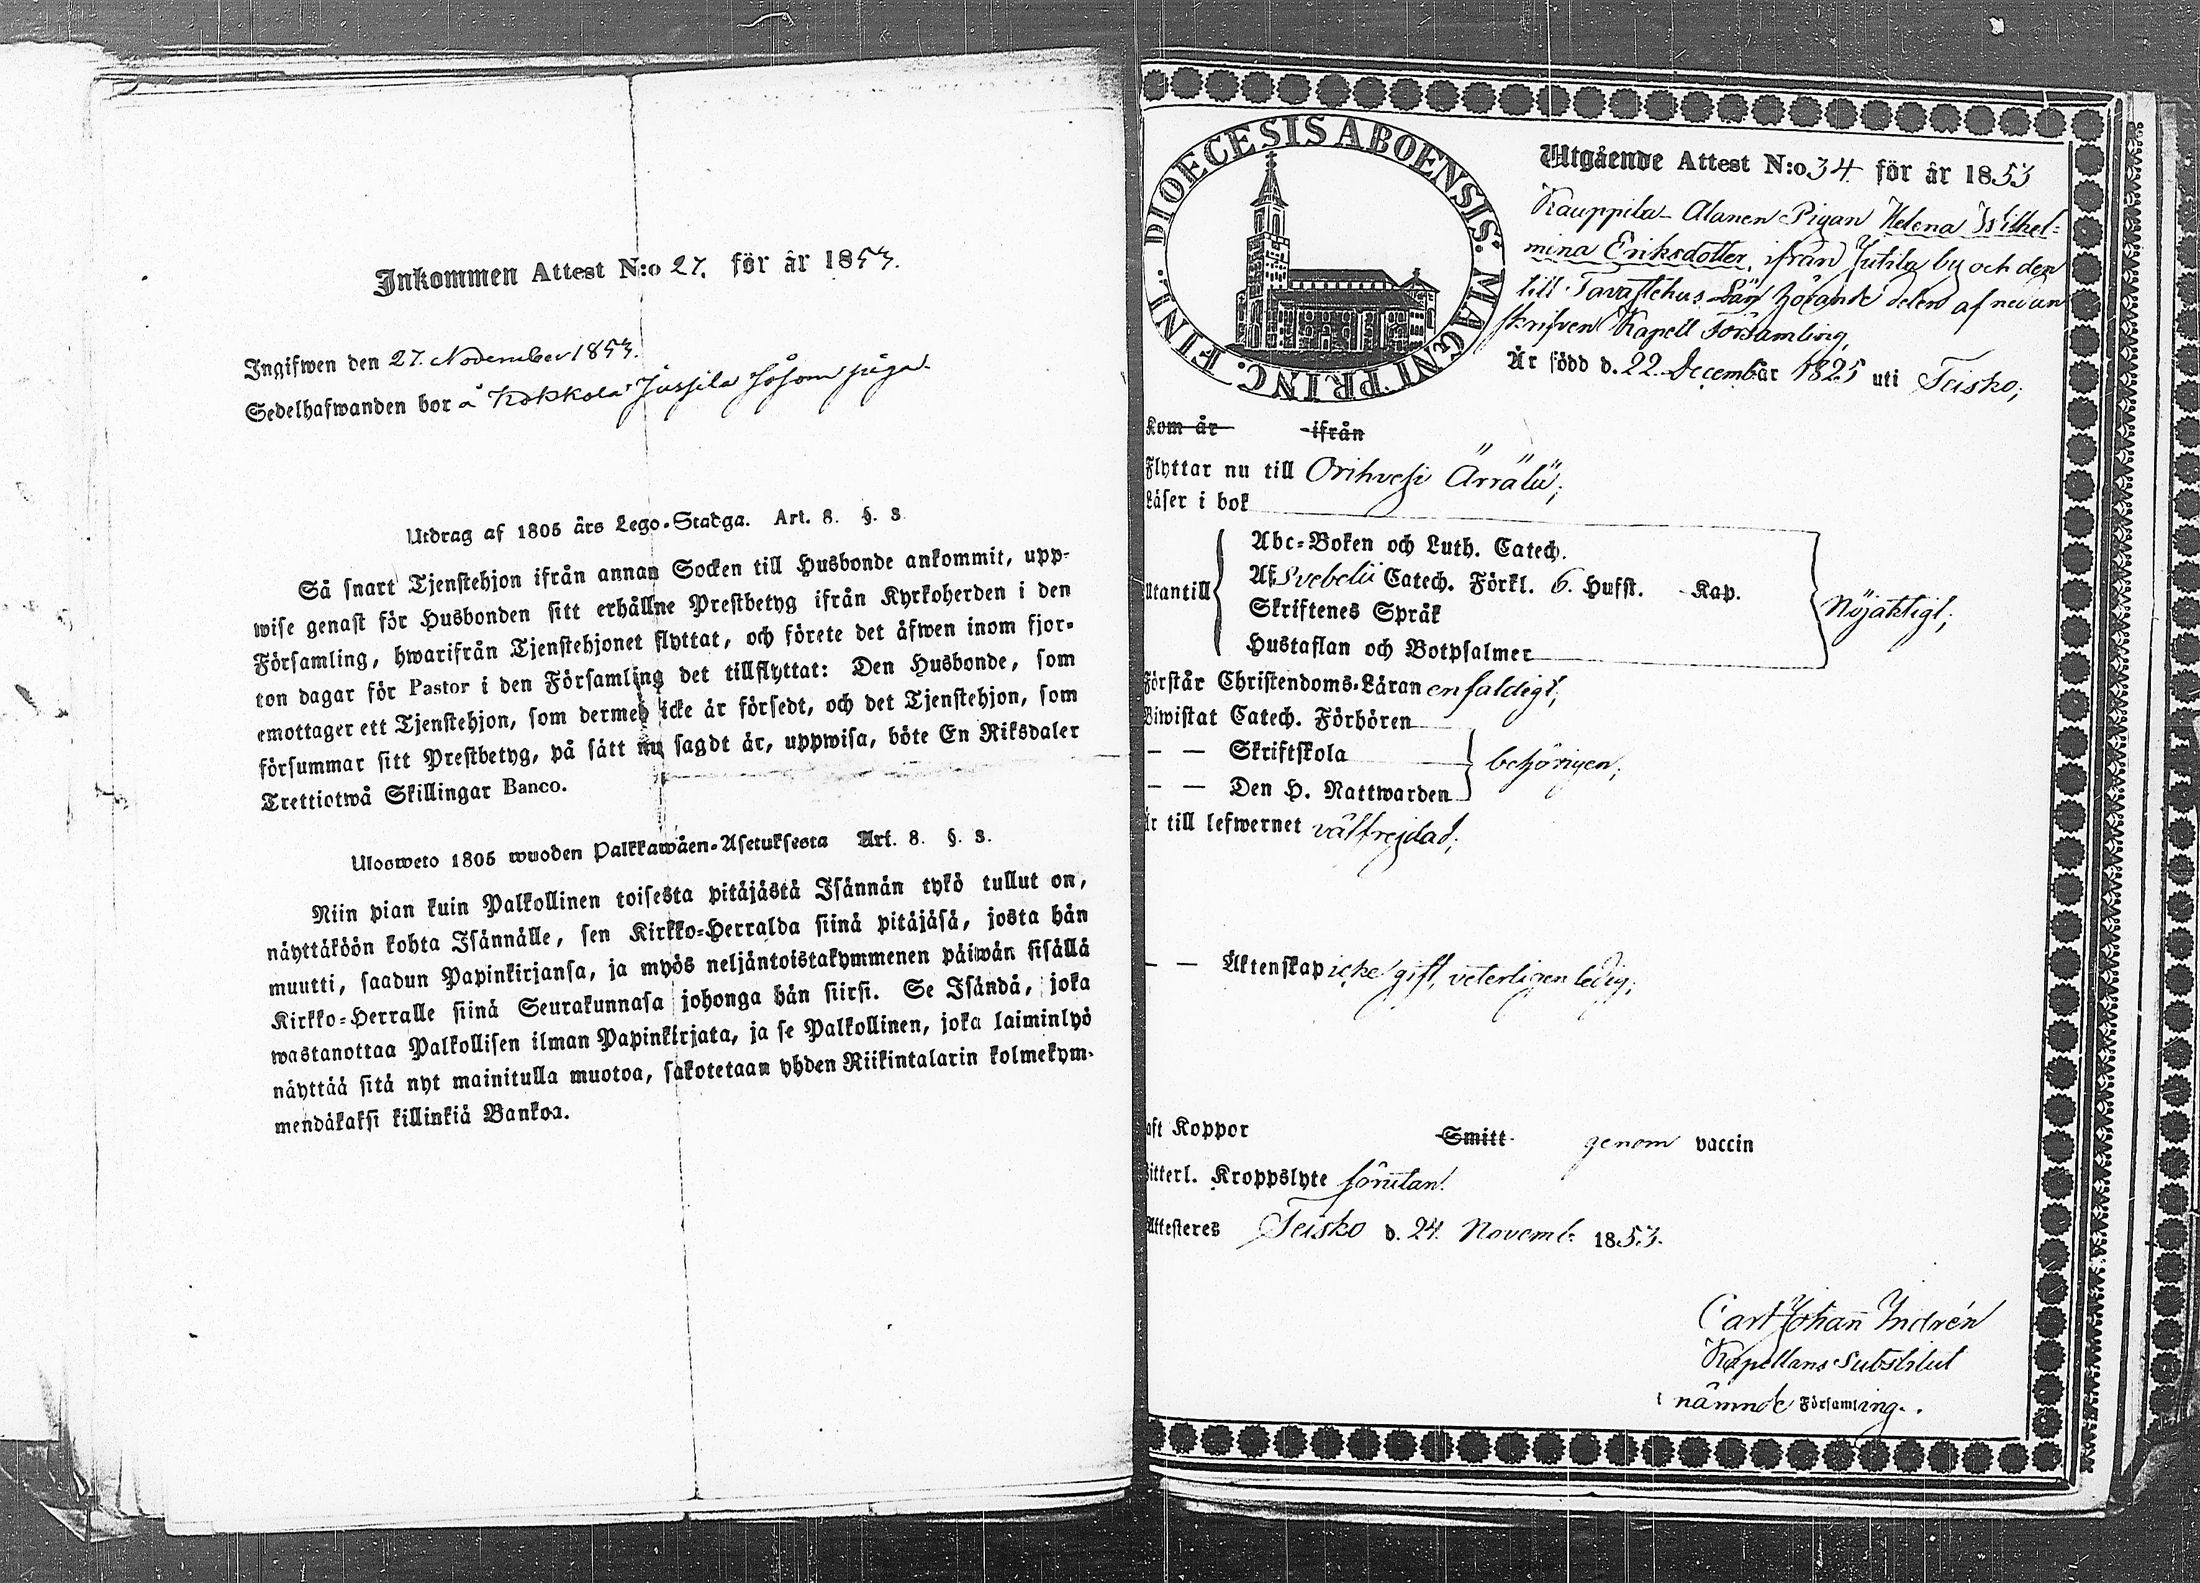 Inkommen Attest N:o 27. för år 1853.
Ingifwen den 27. November 1853.
Sedelhafwanden bor å Kokkola Jussila såsom piga.
Utdrag af 1805 års Lego-Stadga. Art. 8. §. 3.
Så snart Tjenstehjon ifrån annan Socken till Husbonde ankommit, upp-
wise genast för Husbonden sitt erhållne Prestbetyg ifrån Kyrkoherden i den
Församling, hwarifrån Tjenstehjonet flyttat, och förete det åfwen inom fjor-
ton dagar för Pastor i den Församling det tillflyttat: Den Husbonde, som
emottager ett Tjenstehjon, som dermed icke är försedt, och det Tjenstehjon, som
försummar sitt Prestbetyg, på sätt nu sagdt är, uppwisa, böte En Riksdaler
Trettiotwå Skillingar Banco.
Ulosweto 1805 wuoden Palkkawäen-Asetuksesta Art. 8. §. 3.
Niin pian kuin Palkollinen toisesta pitäjästä Isännän tykö tullut on,
näyttäköön kohta Isännälle, sen Kirkko-Herralda siinä pitäjäsä, josta hän
muutti, saadun Papinkirjansa, ja myös neljäntoistakymmenen päiwän sisällä
Kirkko-Herralle siinä Seurakunnasa johonga hän siirsi. Se Isändä, joka
wastanottaa Palkollisen ilman Papinkirjata, ja se Palkollinen, joka laiminlyö
näyttää sitä nyt mainitulla muotoa, sakotetaan yhden Riikintalarin kolmekym-
mendäkaksi killinkiä Bankoa.
DIOECESIS ABOENSIS. MAGNI PRINC. FINL.
Utgående Attest N:o 34 för år 1853
Kauppila-Alanen Pigan Helena Wilhel-
mina Eriksdotter, ifrån Jutila by och den
till Tavastehus Län hörande delen af
skrifven Kapell Församling,
Är född d. 22. December 1825 uti Teisko;
Kom år ifrån
Flyttar nu till Orihvesi Ärrälä;
Läser i bok
Abc-Boken och Luth. Catech.
Utantill Af Svebelii Catech. Förkl. 6. Hufst. - Kap. Nöjaktigt;
Skriftenes Språk
Hustaflan och Botpsalmer
Förstår Christendoms-Läran enfaldigt;
Biwistat Catech. Förhören
— — Skriftskola behörigen;
— — Den H. Nattwarden
Är till lefwernet välfrejdad;
— — Äktenskap icke gift, veterligen ledig;
aft Koppor Smitt genom vaccin
itterl. Kroppslyte förutan.
Attesteres Teisko d. 24. Novemb. 1853.
Carl Johan Indrén
Kapellans Substitut
i nämnde Församling.